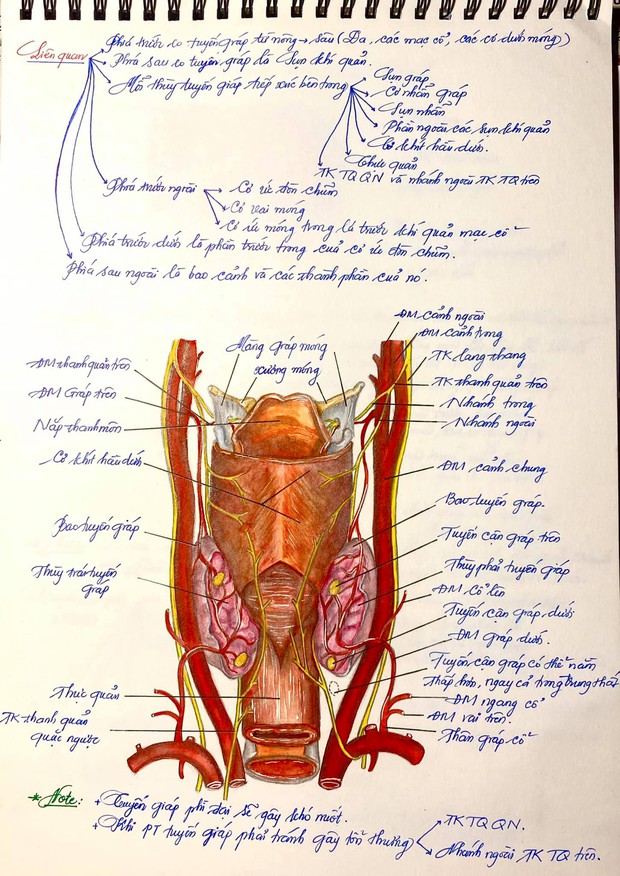 Liên quan
Phía trước co tuyến giáp từ nông → sâu (Da, các mạc cổ, các cơ dưới móng)
Phía sau eo tuyến giáp là Sụn khí quản.
Mỗi thùy tuyến giáp tiếp xúc bên trong
Sụn giáp
Cơ nhẫn giáp
Sụn nhẫn
Phần ngoài các sụn khí quản
Cơ khít hầu dưới.
Thực quản
TK TQ QN và nhánh ngoài TK TQ trên
Phía trước ngoài
Cơ ức đòn chũm
Cơ vai móng
Cơ ức móng trong lá trước khí quản mạc cổ
Phía trước dưới là phần trước trong của cơ ức đòn chũm.
Phía sau ngoài là bao cảnh và các thành phần của nó.
ĐM cảnh ngoài
Màng giáp móng
ĐM cảnh trong
xương móng
TK lang thang
ĐM thanh quản trên
TK thanh quản trên
ĐM Giáp trên
Nhánh trong
Nắp thanh môn
Nhánh ngoài
Cơ khít hầu dưới
ĐM cảnh chung
Bao tuyến giáp.
Bao tuyến giáp
Tuyến cận giáp trên
Thùy trái tuyến
giáp
Thùy phải tuyến giáp
ĐM cổ lên
Tuyến cận giáp dưới
ĐM giáp dưới.
Tuyến cận giáp có thể nằm
thấp hơn, ngay cả trong trung thất
Thực quản
ĐM ngang cổ
TK thanh quản
quặt ngược
ĐM vai trên.
Thân giáp cổ
* Note:
+ Tuyến giáp phì đại sẽ gây khó nuốt.
+ Khi PT tuyến giáp phải tránh gây tổn thương
TK TQ QN.
Nhánh ngoài TK TQ trên.